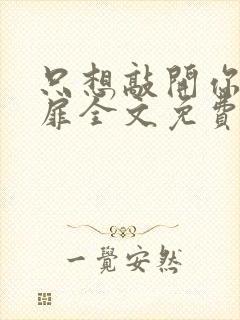 只想敲開你
扉全文免費
一覺安然